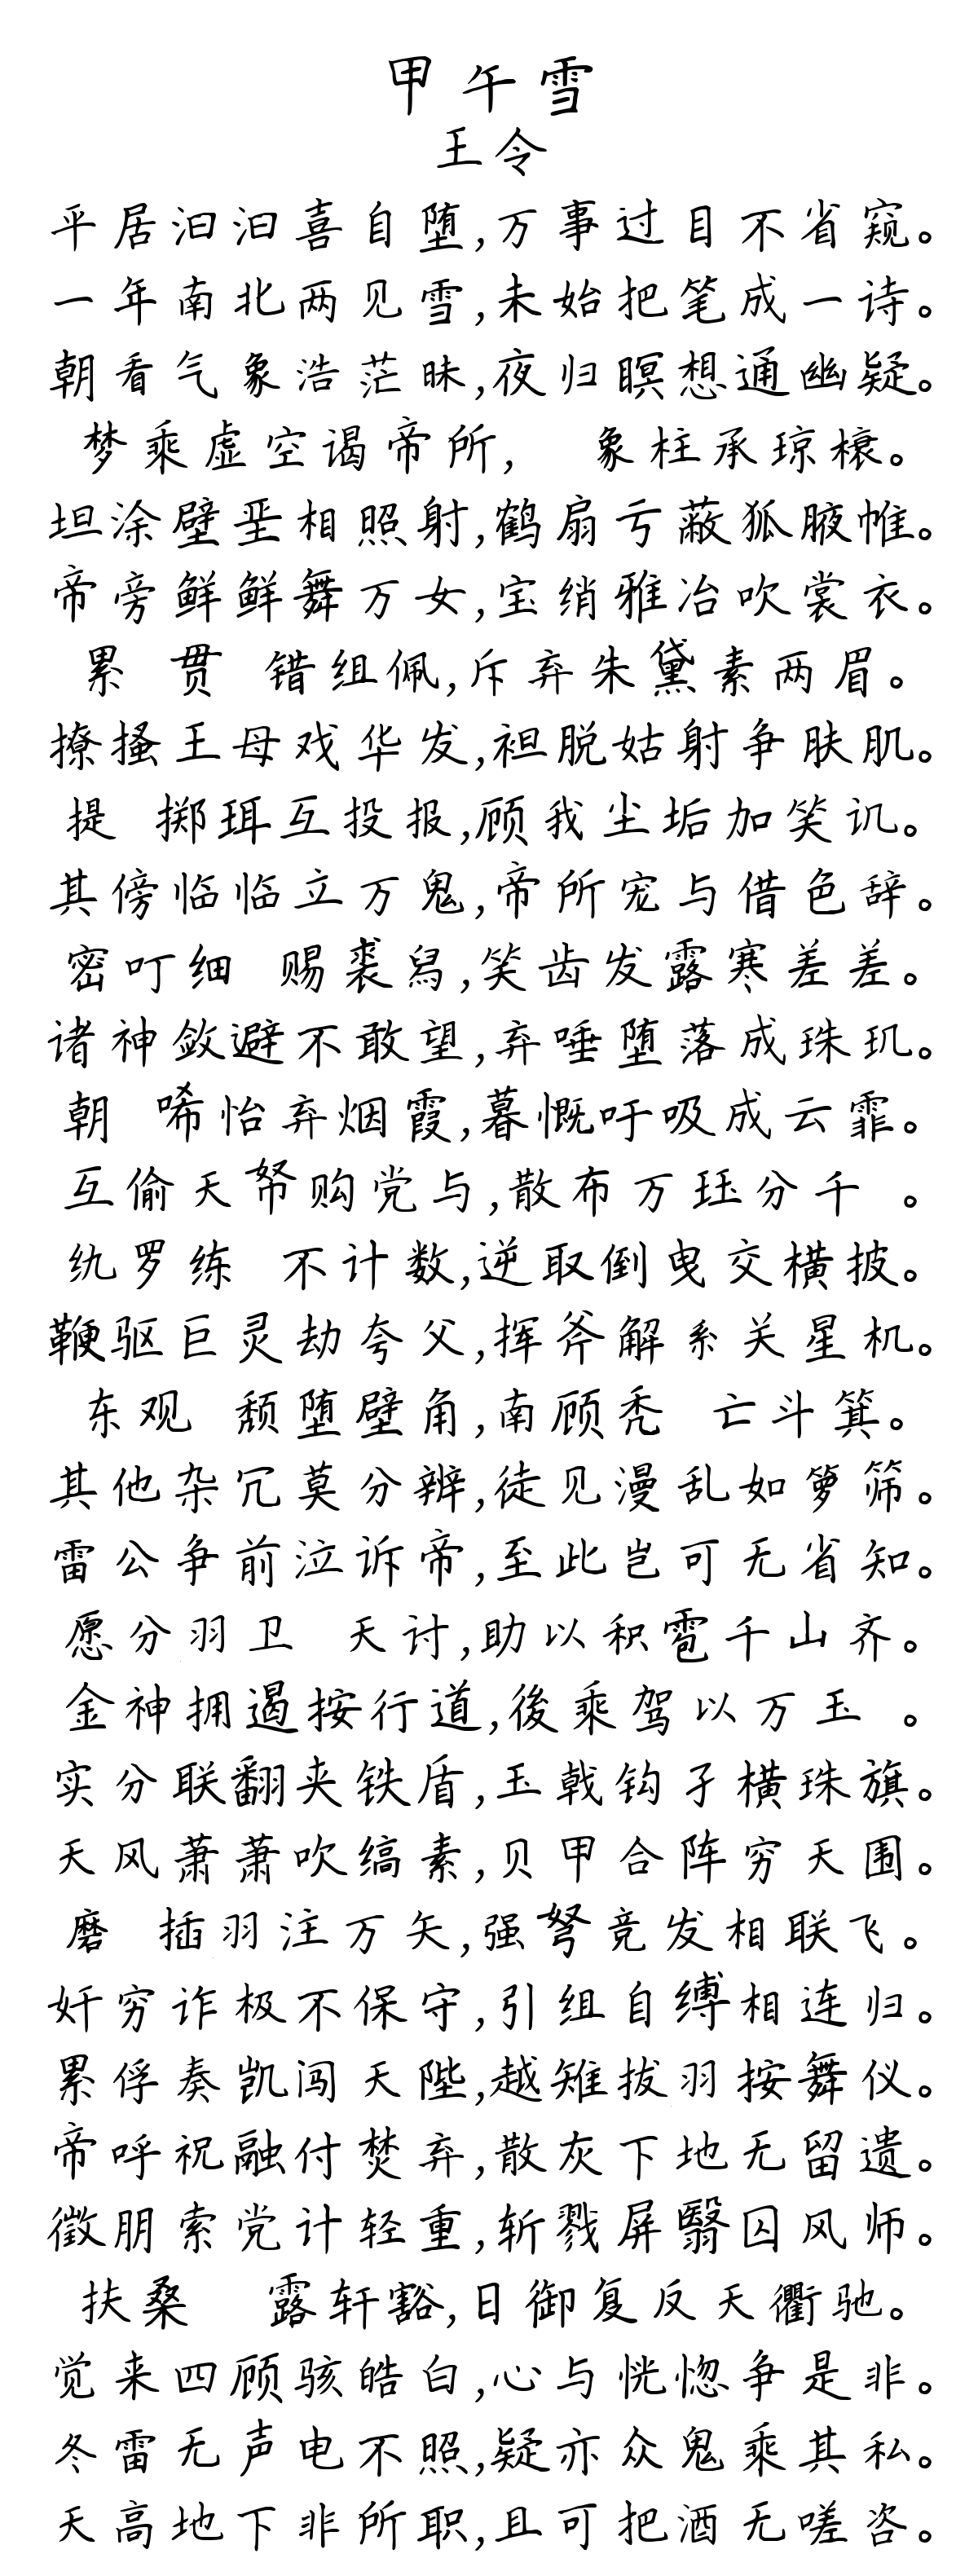 甲午雪
王令
平居汩汩喜自堕,万事过目不省窥。
一年南北两见雪,未始把笔成一诗。
朝看气象浩茫昧,夜归瞑想通幽疑。
梦乘虚空谒帝所, 象柱承琼榱。
坦涂壁垩相照射,鹤扇亏蔽狐腋帷。
帝旁鲜鲜舞万女,宝绡雅冶吹裳衣。
累 贯 错组佩,斥弃朱黛素两眉。
撩搔王母戏华发,袒脱姑射争肤肌。
提 掷珥互投报,顾我尘垢加笑讥。
其傍临临立万鬼,帝所宠与借色辞。
密叮细 赐裘舄,笑齿发露寒差差。
诸神敛避不敢望,弃唾堕落成珠玑。
朝 唏怡弃烟霞,暮慨吁吸成云霏。
互偷天帑购党与,散布万珏分千 。
纨罗练 不计数,逆取倒曳交横披。
鞭驱巨灵劫夸父,挥斧解系关星机。
东观 颓堕壁角,南顾秃 亡斗箕。
其他杂冗莫分辨,徒见漫乱如箩筛。
雷公争前泣诉帝,至此岂可无省知。
愿分羽卫 天讨,助以积雹千山齐。
金神拥遏按行道,後乘驾以万玉 。
实分联翻夹铁盾,玉戟钩孑横珠旗。
天风萧萧吹缟素,贝甲合阵穷天围。
磨 插羽注万矢,强弩竞发相联飞。
奸穷诈极不保守,引组自缚相连归。
累俘奏凯闯天陛,越雉拔羽按舞仪。
帝呼祝融付焚弃,散灰下地无留遗。
徵朋索党计轻重,斩戮屏翳囚风师。
扶桑 露轩豁,日御复反天衢驰。
觉来四顾骇皓白,心与恍惚争是非。
冬雷无声电不照,疑亦众鬼乘其私。
天高地下非所职,且可把酒无嗟咨。